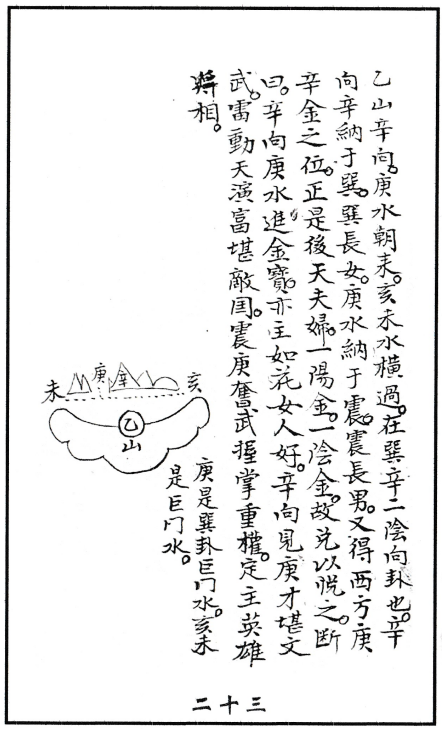 乙山辛向。庚水朝来。亥未水橫過。在巽辛二陰向卦也。辛
向辛納于巽。巽長女。庚水納于震。震長男。又得西方庚
辛金之位。正是後天夫婦。一陽金。一陰金。故兑以脱之。断
曰。辛向庚水進金寶。亦主如花女人好。辛向見庚才堪文
武。雷動天演富堪敵国。震庚奮武握掌重權。定主英雄
將相。
未
庚
辛
亥
乙
山
庚是巽卦巨门水。亥未
是巨门水。
二十三